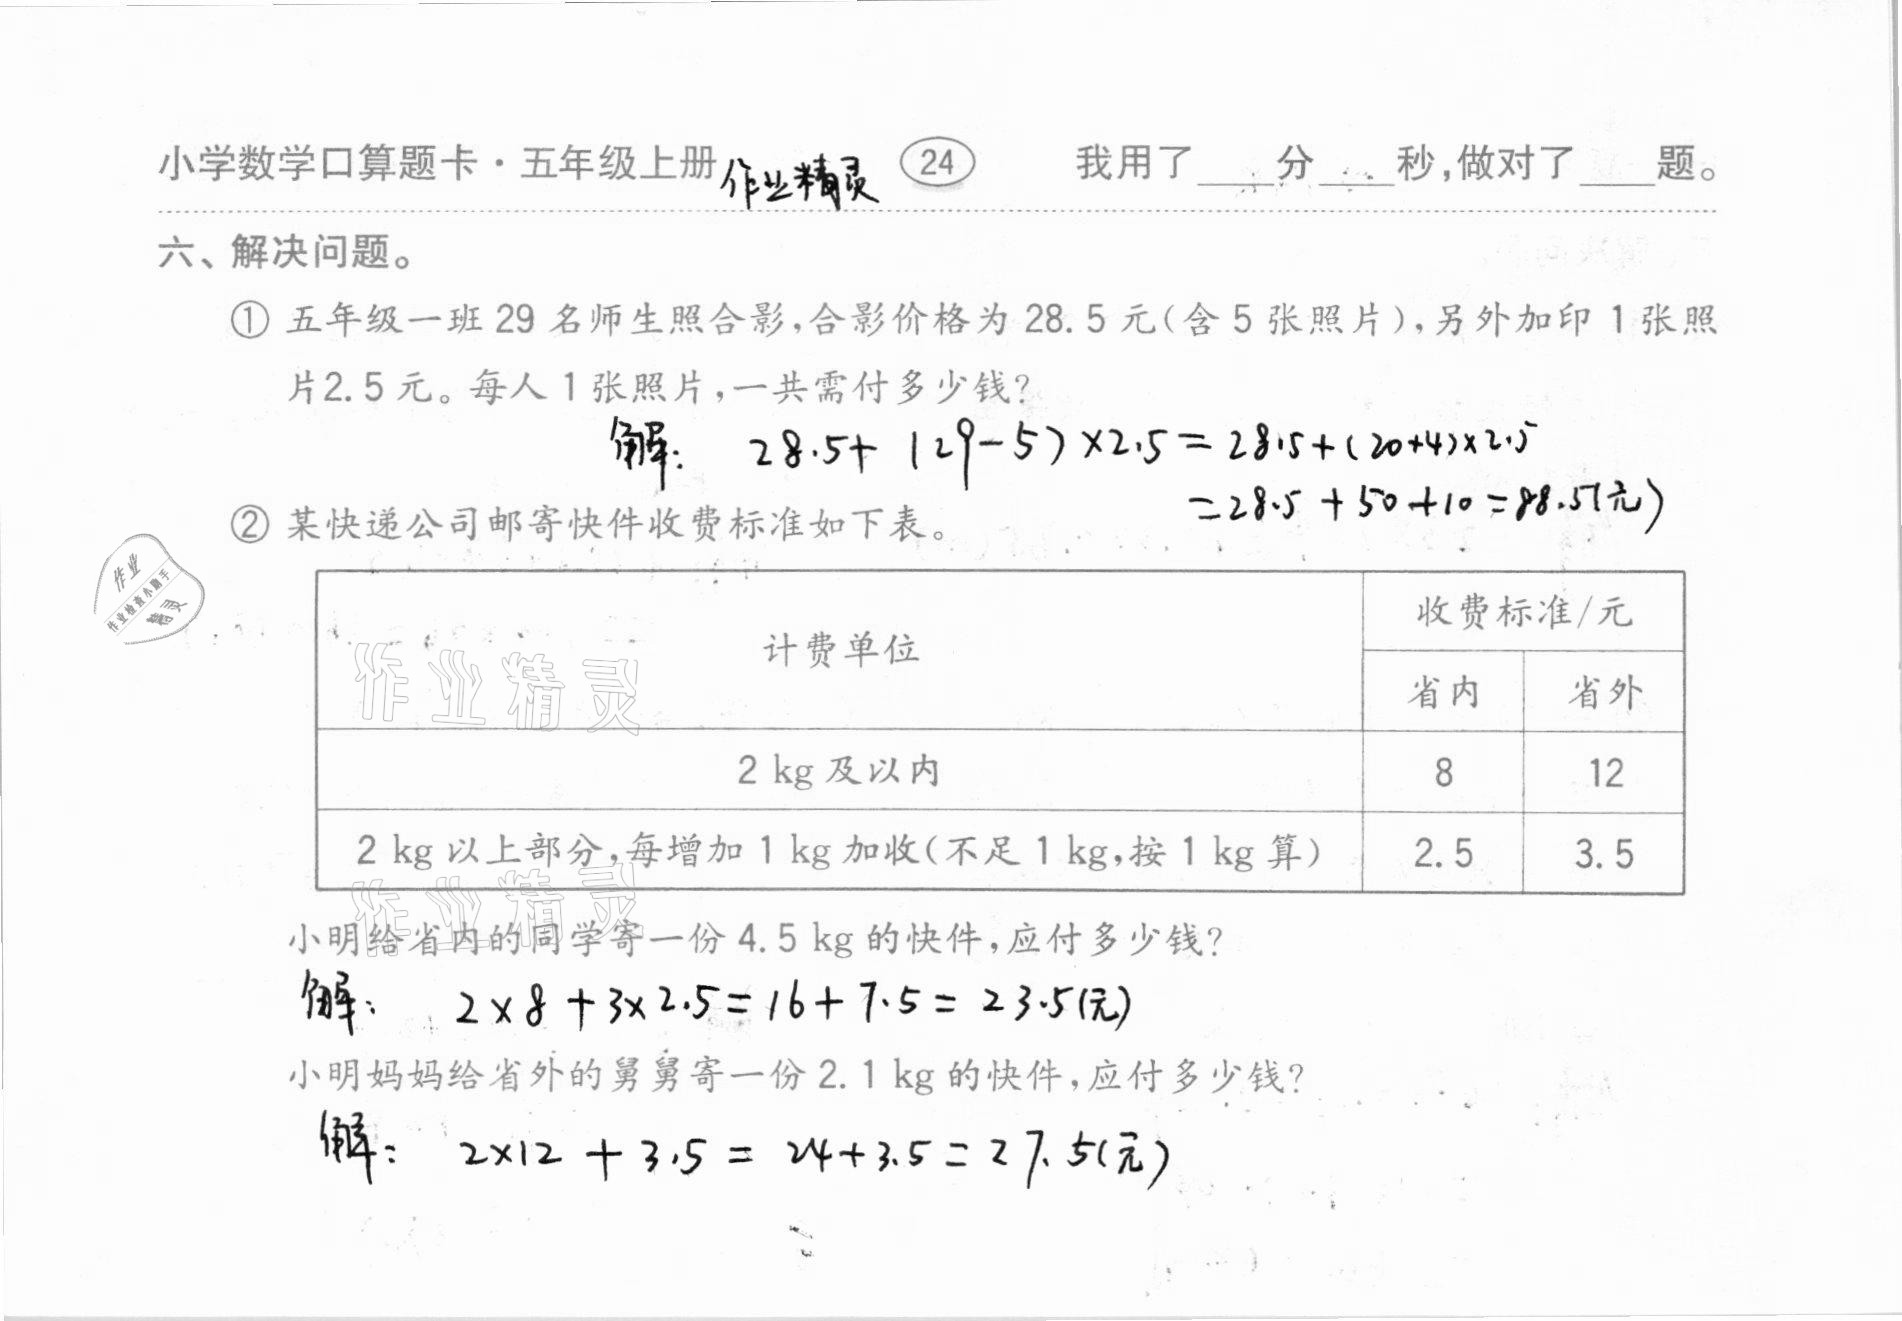 小学数学口算题卡·五年级上册 作业精灵 24 我用了____分____秒,做对了____题。
六、解决问题。
① 五年级一班 29 名师生照合影,合影价格为 28.5 元(含 5 张照片),另外加印 1 张照
片2.5 元。每人 1 张照片,一共需付多少钱?
解: 28.5+(29-5)×2.5=28.5+(20+4)×2.5
=28.5+50+10=88.5(元)
② 某快递公司邮寄快件收费标准如下表。
作业
作业检查小助手
精灵
计费单位 收费标准/元
省内 省外
作业精灵
2 kg 及以内 8 12
2 kg 以上部分,每增加 1 kg 加收(不足 1 kg,按 1 kg 算) 2.5 3.5
作业精灵
小明给省内的同学寄一份 4.5 kg 的快件,应付多少钱?
解: 2×8+3×2.5=16+7.5=23.5(元)
小明妈妈给省外的舅舅寄一份 2.1 kg 的快件,应付多少钱?
解: 2×12+3.5=24+3.5=27.5(元)